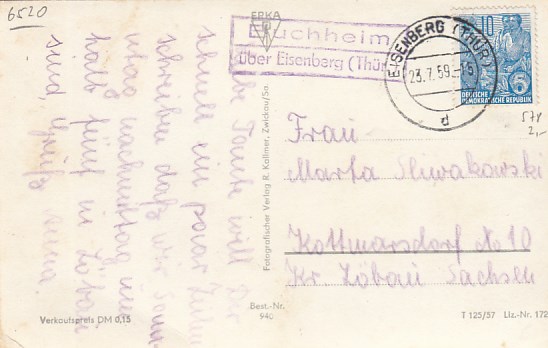 6520
Buchheim
über Eisenberg (Thür)
EISENBERG (THÜR)
23.7.59.-16
d
10
DEUTSCHE
DEMOKRATISCHE REPUBLIK
578
2,-
ERKA
Liebe Tante will Dir
schnell ein paar Zeilen
schreiben daß wir Sonn-
tag nachmittag um
halb fünf in Löbau
sind, Gruß Anna.
Fotografischer Verlag R. Kallmer, Zwickau/Sa.
Frau
Marta Sliwakowski
Kottmarsdorf No 10
Kr Löbau Sachsen
Verkaufspreis DM 0,15
Best.-Nr.
940
T 125/57 Liz.-Nr. 172